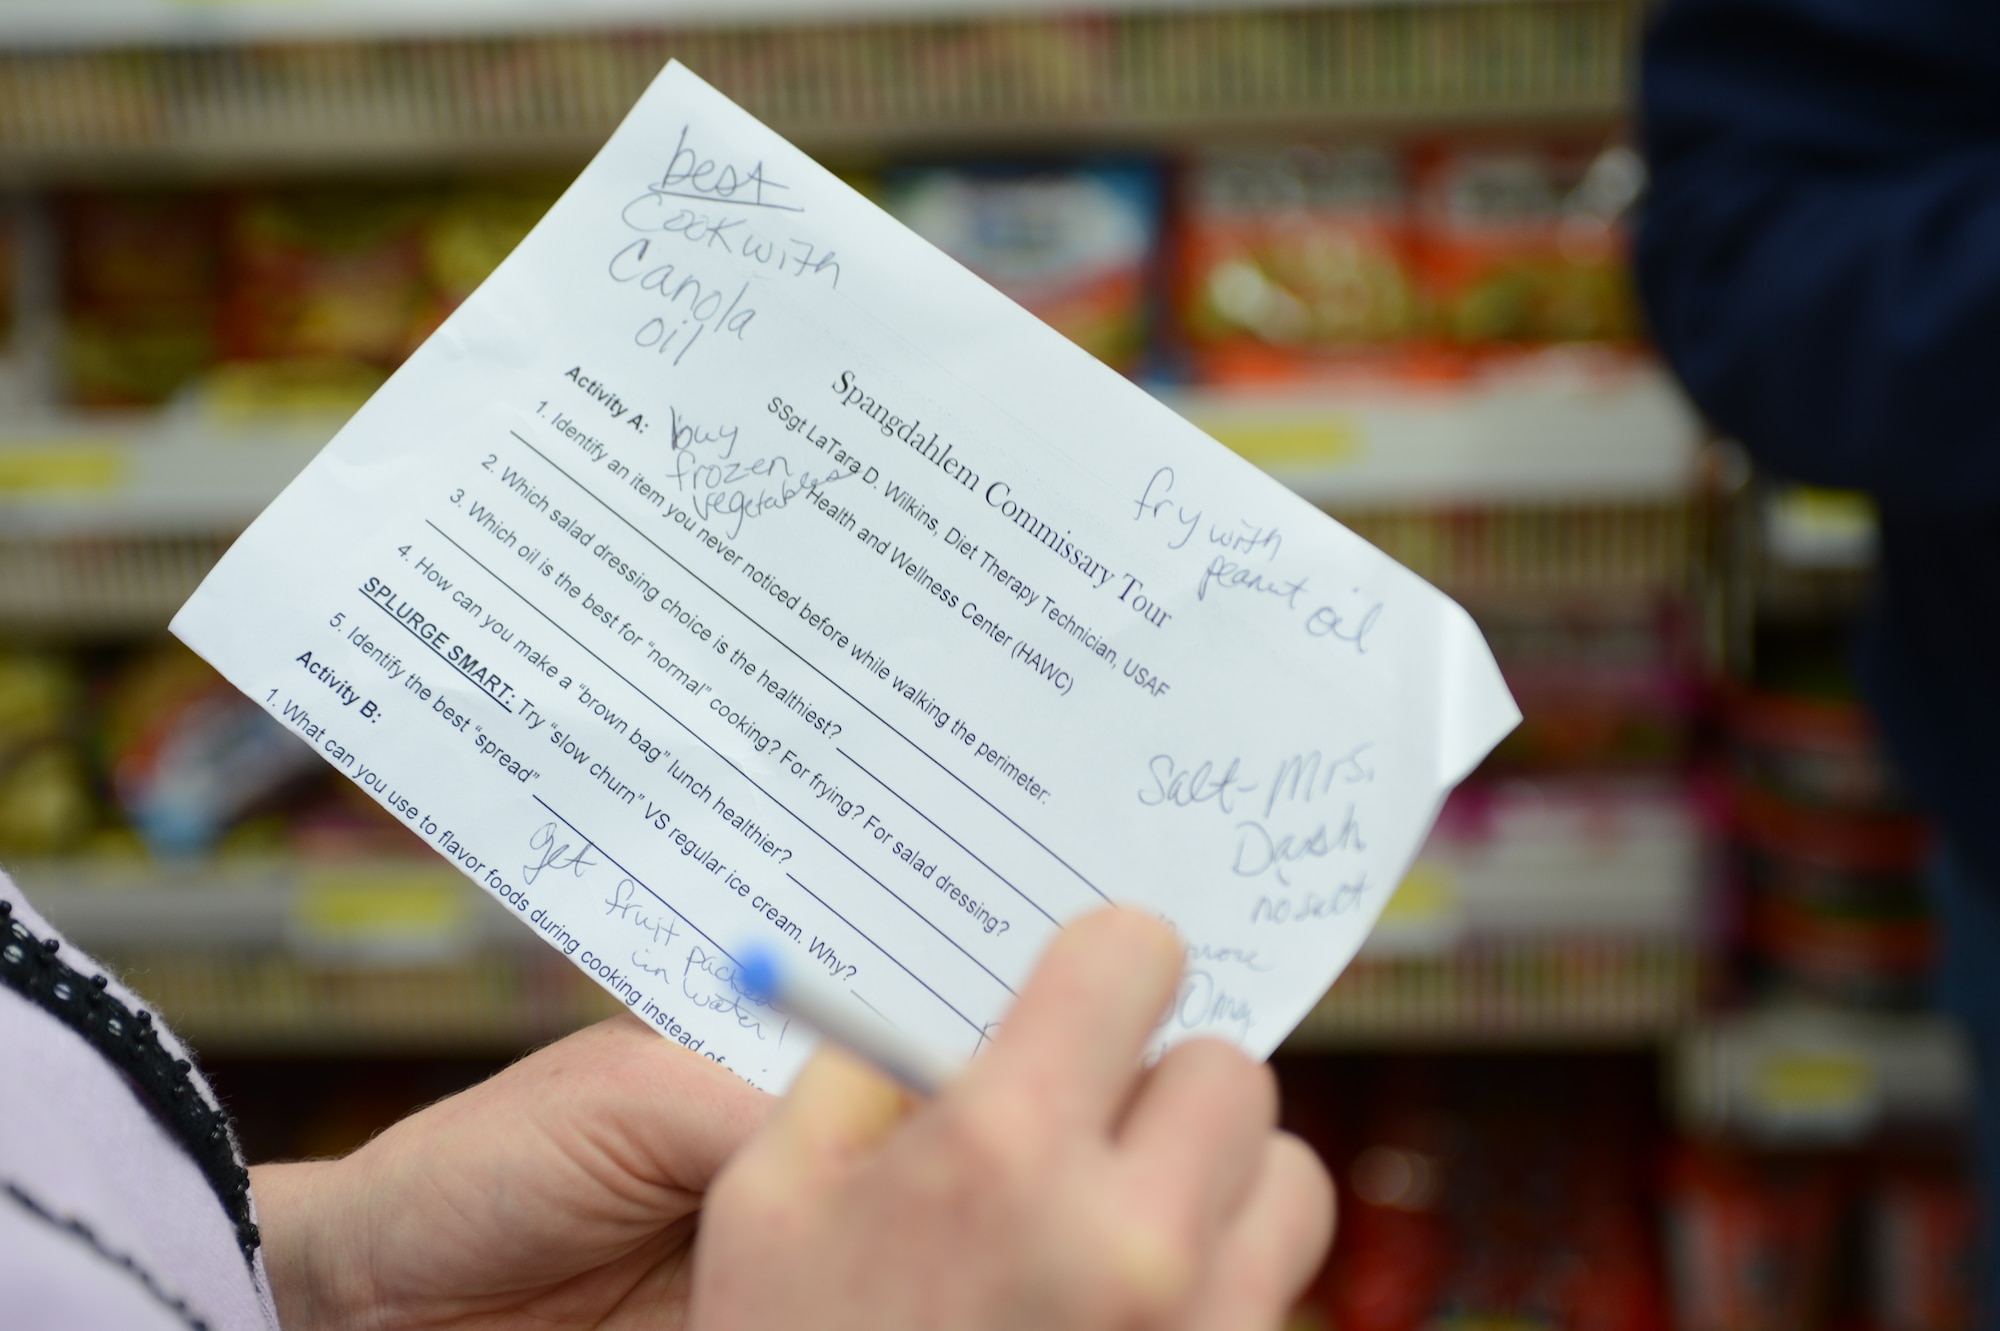 best
Cook with
Canola
oil
fry with
peanut oil
Spangdahlem Commissary Tour
SSgt LaTara D. Wilkins, Diet Therapy Technician, USAF
Health and Wellness Center (HAWC)
Activity A:
buy
frozen
1. Identify an item you never noticed before while walking the perimeter:
2. Which salad dressing choice is the healthiest?
3. Which oil is the best for "normal" cooking? For frying? For salad dressing?
4. How can you make a "brown bag" lunch healthier?
SPLURGE SMART: Try "slow churn" VS regular ice cream. Why?
5. Identify the best "spread"
Activity B:
get fruit packed
in water!
1. What can you use to flavor foods during cooking instead of
Salt - Mrs.
Dash
no salt